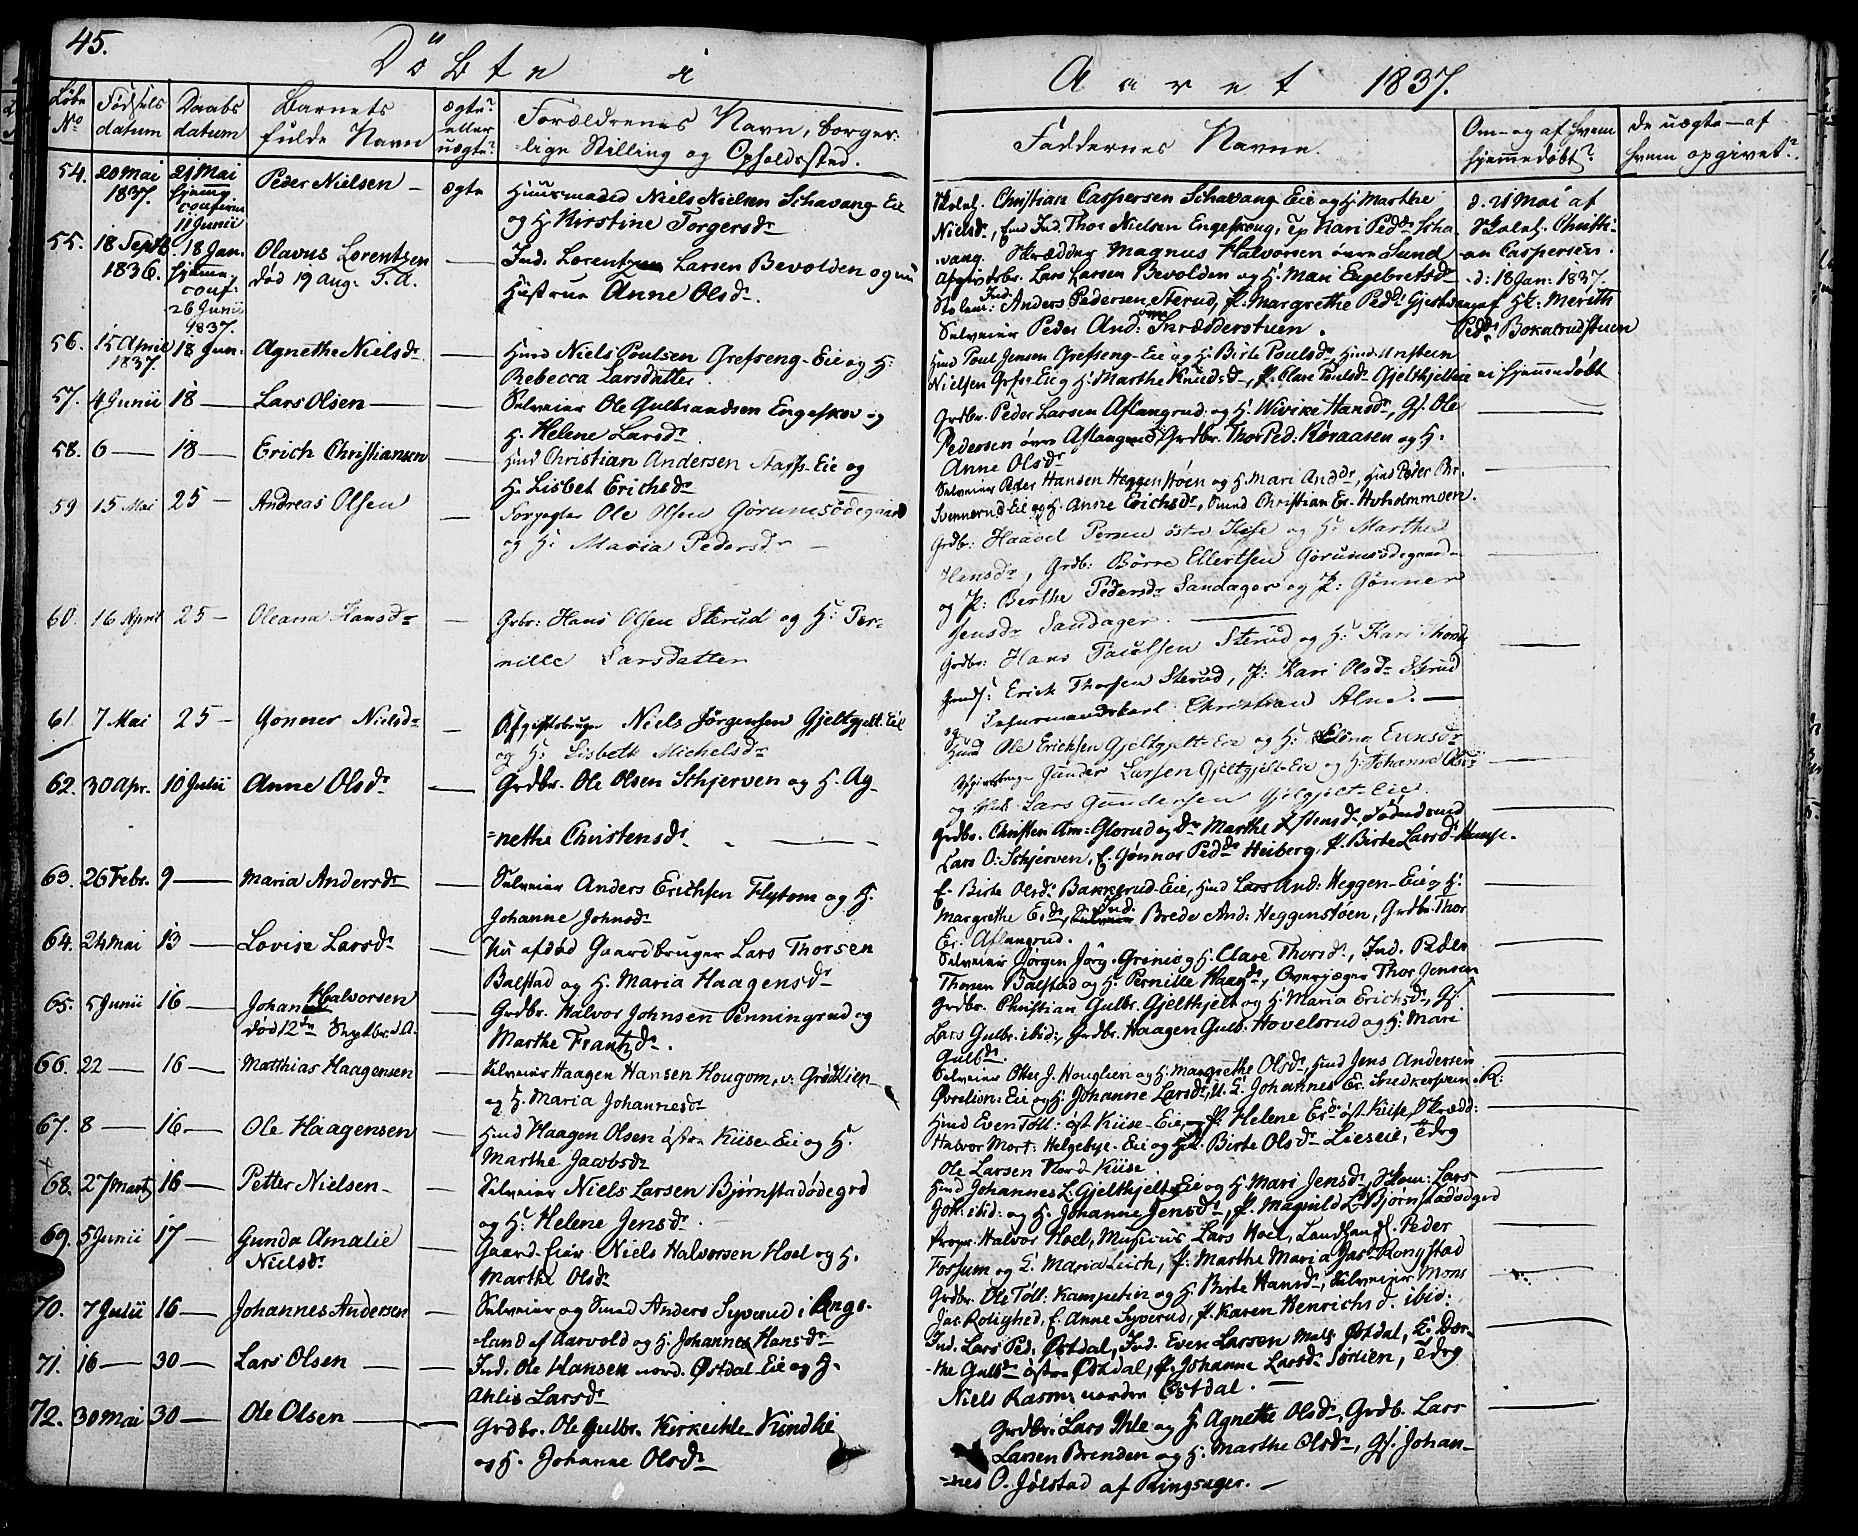 45.
Döbte i
Aaret 1837.
Løbe No
Fødsels datum
Daabs datum
Barnets fulde Navn
ægte? eller uægte?
Forældrenes Navn, borger-
lige Stilling og Opholdssted.
Faddernes Navne.
Om- og af hvem hjemmedøbt?
De uægte - af hvem opgivet?
54. 20 Mai 1837. 21 Mai hjemme confirm 11 Junii Peder Nielsen - ægte Huusmand Niels Nielsen Schavang-Eie
og H. Kirstine Torgersdr
Skoleh. Christian Caspersen Schavang Eie og H. Marthe
Nielsdr, Ind. Thor Nielsen Engeskoug, Kari Pedsdr Scha-
vang. Skrædder Magnus Halvorsen øvre Sund
d. 21 Mai af Skoleh. Christi-
an Caspersen.
55. 18 Septb 1836. 18 Jan. hjeme conf. 26 Junii 1837. Olavus Lorentzen
død 19 aug. S. A.
Ind. Lorentz Larsen Bevolden og
Hustrue Anne Olsdr.
Afgiftsbr. Lars Larsen Bevolden og H. Mari Engebretsdr
Ind. Anders Pedersen Sterud, P. Margrethe Pedsdr
Selveier Peder And: Skrædderstuen.
d. 18 Jan: 1837.
af H. Merith
Pedsdr Bokalrudstuen
56. 15 April 1837. 18 Jun. Agnethe Nielsdr - Hmd Niels Poulsen Grefseng-Eie og H.
Rebecca Larsdatter.
Hmd Poul Jensen Grefseng-Eie og H. Birte Poulsdr, Hmd Christen
Nielsen Grfs-Eie og H. Marthe Knudsdr, P. Clare Poulsdr Gjeltkjelteie
ei hjemmedøbt
57. 4 Junii 18 - Lars Olsen - Selveier Ole Gulbrandsen Engeskov og
H. Helene Larsdr
Grdbr. Peder Larsen Aslangrud og H. Wivike Hansdr, Gf. Ole
Pedersen øvre Aslangrud, Grdbr. Thor Ped: Koraasen og H.
Anne Olsdr
58. 6 - 18 - Erich Christiansen - Hmd Christian Andersen Aass-Eie og
H. Lisbet Erichsdr
Selveier Peder Hansen Heggenstøen og H. Mari Andsdr, Hmd Peder Br.
Svennerud Eie og H. Anne Erichsdr, Smed Christian Er. Hoholmmoen.
59 15 Mai 25 - Andreas Olsen - Forpagter Ole Olsen Gorumsødegaard
og H. Maria Pedersdr -
Grdb: Haavel Persen østre Kise og H. Marthe
Hansdr, Grdb: Børre Ellertsen Gorumsødegaard
og P: Berthe Pedersdr Sandager og P: Gønner
Jensdr Sandager.
60. 16 April 25 - Oleana Hansdr - Grbr: Hans Olsen Sterud og H: Per-
nille Larsdatter
Grdbr: Hans Paulsen Sterud og H: Kari Thorsdr
Erick Thorsen Sterud, P: Kari Olsdr Sterud
og Informandskarl Christian Alm.
61. 7 Mai 25 - Gønner Nielsdr - Afgiftsbruger Niels Jørgensen Gjeltgjelt-Eie
og H: Lisbeth Michelsdr
Hmd Ole Erichsen Gjeltgjelt-Eie og H: Elena Evensdr
Gunder Larsen Gjeltgjelt-Eie og H: Johanne Olsdr
og Lars Gundersen Gjelgjelt-Eie.
62. 30 Apr. 10 Julii Anne Olsdr - Grdbr. Ole Olsen Schjerven og H. Ag-
nethe Christensdr.
Grdbr. Christen Am: Glorud og Marthe
Lars O: Schjerven, E. Gønnor Pedsdr Heiberg, P. Birte Larsdr
63. 26 Febr. 9 - Maria Andersdr - Selveier Anders Erichsen Flytom og H.
Johanne Johnsdr
E. Birte Olsdr Bakkerud-Eie, Hmd Lars And: Heggen-Eie og H.
Margrethe Ersdr, Ind: Brede And: Heggenstøen, Grdbr. Thor
Er. Aslangrud.
64. 24 Mai 13 - Lovise Larsdr - Nu afdød Gaardbruger Lars Thorsen
Balstad og H. Maria Haagensdr
Selveier Jørgen Jörg. Grinie og H. Clare Thorsdr, Ind. Peder
Thorsen Balstad og H. Pernille Haagsdr, Overjæger Thor Jensen
65. 5 Junii 16 - Johan Halvorsen
død 12te Septbr. S.A.
Grdbr. Halvor Johnsen Penningrud og
Marthe Frantzdr.
Grdbr. Christian Gulbr. Gjeltkjelt og H. Maria Erichsdr, Gf
Lars Gulbr. ibid:, Grdbr. Haagen Gulb. Hovelsrud og H. Mari
Gulbdr.
66. 22 - 16 - Matthias Haagensen Selveier Haagen Hansen Hougom, v: Grødlien
og H. Maria Johannesdr
Selveier Otter J. Houglien og H. Margrethe Olsdr, Hmd Jens Andersen
Qvrelion: Eie og H. Johanne Larsdr, U. C. Johannes Er.
67. 8 - 16 - Ole Haagensen - Hmd Haagen Olsen østre Kiise-Eie og H.
Marthe Jacobsdr
Hmd Even Toll: øst Kiise-Eie, P Helene Ersdr øst Kiise, Skrædd:
Halvor Mort: Helgebye-Eie og H. Birte Olsdr Lieseie, Tdrg
Ole Larsen Nord Kiise
68. 27 Marts 16 - Petter Nielsen - Selveier Niels Larsen Bjørnstadødegrd
og H. Helene Jensdr.
Hmd Johannes L: Gjeltkjelt Eie og H. Mari Jensdr, Lars
Joh: ibid: og H. Johanne Jensdr, P. Magnild L. Bjørnstadødegrd
69. 5 Junii 17 - Gunda Amalie
Nielsdr
Gaard-Eier Niels Halvorsen Hoel og H.
Marthe Olsdr
Propr. Halvor Hoel, Musicus Lars Hoel, Landhandl. Peder
Fossum og E. Maria Leich, P: Marthe Maria Jacs Rongstad
70. 7 Julii 16 - Johannes Andersen Selveier og Smed Anders Syverud i Enge-
land af Aarvold og H. Johannes Hansdr
Grdbr. Ole Toll: Kampetin og H. Birte Hansdr, Selveier Mons
Jac. Rolighed, E. Anne Syverud, P. Karen Henrichsd. ibid:
71. 16 - 30 - Lars Olsen - Ind. Ole Hansen nord. Østdal-Eie og H.
Ahlis Larsdr
Ind. Lars Ped: Østdal, Ind. Even Larsen Østdal, E. Dor-
the Gulbdr østre Østdal, P. Johanne Larsdr Sørlien, Tdrg
Niels Rasm: nordre Østdal.
72. 30 Mai 30 - Ole Olsen - Grdbr. Ole Gulbr. Kirkeihle Kindlie
og H. Johanne Olsdr
Grdbr. Lars Ihle og H. Agnethe Olsdr, Grdb. Lars
Larsen Brenden og H. Marthe Olsdr, Gf. Johan-
nes O. Jølstad af Ringsager. -